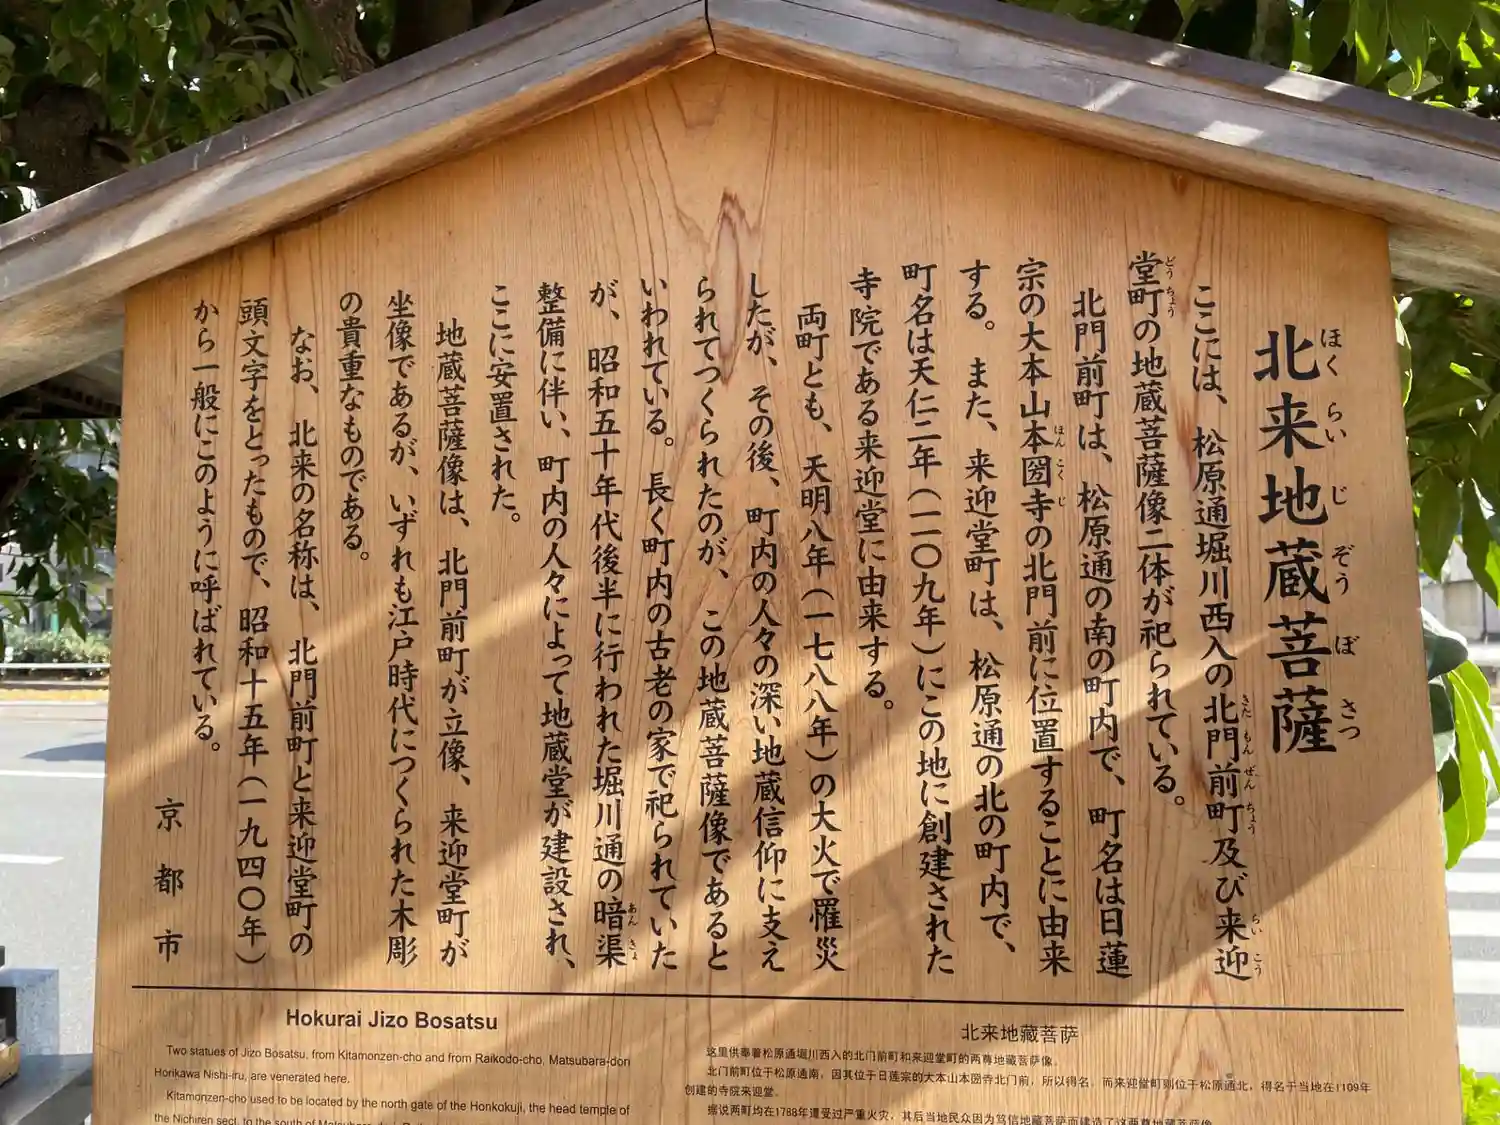 北来地蔵菩薩
ほくらいじぞうぼさつ
ここには、松原通堀川西入の北門前町及び来迎
きたもんぜんちょう
らいこう
堂町の地蔵菩薩像二体が祀られている。
どうちょう
北門前町は、松原通の南の町内で、町名は日蓮
宗の大本山本圀寺の北門前に位置することに由来
ほんこくじ
する。また、来迎堂町は、松原通の北の町内で、
町名は天仁二年(一一〇九年)にこの地に創建された
寺院である来迎堂に由来する。
両町とも、天明八年(一七八八年)の大火で罹災
したが、その後、町内の人々の深い地蔵信仰に支え
られてつくられたのが、この地蔵菩薩像であると
いわれている。長く町内の古老の家で祀られていた
が、昭和五十年代後半に行われた堀川通の暗渠
あんきょ
整備に伴い、町内の人々によって地蔵堂が建設され、
ここに安置された。
地蔵菩薩像は、北門前町が立像、来迎堂町が
坐像であるが、いずれも江戸時代につくられた木彫
の貴重なものである。
なお、北来の名称は、北門前町と来迎堂町の
頭文字をとったもので、昭和十五年(一九四〇年)
から一般にこのように呼ばれている。
京都市
Hokurai Jizo Bosatsu
Two statues of Jizo Bosatsu, from Kitamonzen-cho and from Raikodo-cho, Matsubara-dori
Horikawa Nishi-iru, are venerated here.
Kitamonzen-cho used to be located by the north gate of the Honkokuji, the head temple of
the Nichiren sect, to the south of
北来地藏菩萨
这里供奉着松原通堀川西入的北门前町和来迎堂町的两尊地藏菩萨像。
北门前町位于松原通南，因其位于日莲宗的大本山本圀寺北门前，所以得名。而来迎堂町则位于松原通北，得名于当地在1109年
创建的寺院来迎堂。
据说两町均在1788年遭受过严重火灾，其后当地民众因为笃信地藏菩萨而建造了这两尊地藏菩萨像。